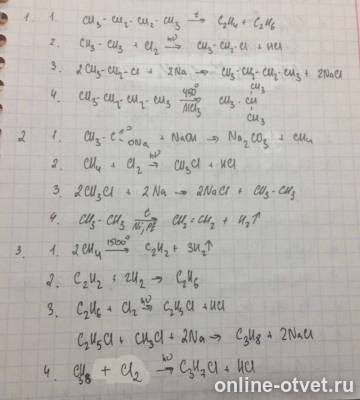 1. 1. CH₃-CH₂-CH₂-CH₃ →(t) C₂H₄ + C₂H₆
2. CH₃-CH₃ + Cl₂ →(hν) CH₃-CH₂-Cl + HCl
3. 2CH₃-CH₂-Cl + 2Na → CH₃-CH₂-CH₂-CH₃ + 2NaCl
4. CH₃-CH₂-CH₂-CH₃ →(450° AlCl₃) CH₃-CH(CH₃)-CH₃
2 1. CH₃-C(=O)ONa + NaOH → Na₂CO₃ + CH₄
2. CH₄ + Cl₂ →(hν) CH₃Cl + HCl
3. 2CH₃Cl + 2Na → 2NaCl + CH₃-CH₃
4. CH₃-CH₃ →(t Ni, Pt) CH₂=CH₂ + H₂↑
3. 1. 2CH₄ →(1500°) C₂H₂ + 3H₂↑
2. C₂H₂ + 2H₂ → C₂H₆
3. C₂H₆ + Cl₂ →(hν) C₂H₅Cl + HCl
C₂H₅Cl + CH₃Cl + 2Na → C₃H₈ + 2NaCl
4. C₃H₈ + Cl₂ →(hν) C₃H₇Cl + HCl
online-otvet.ru